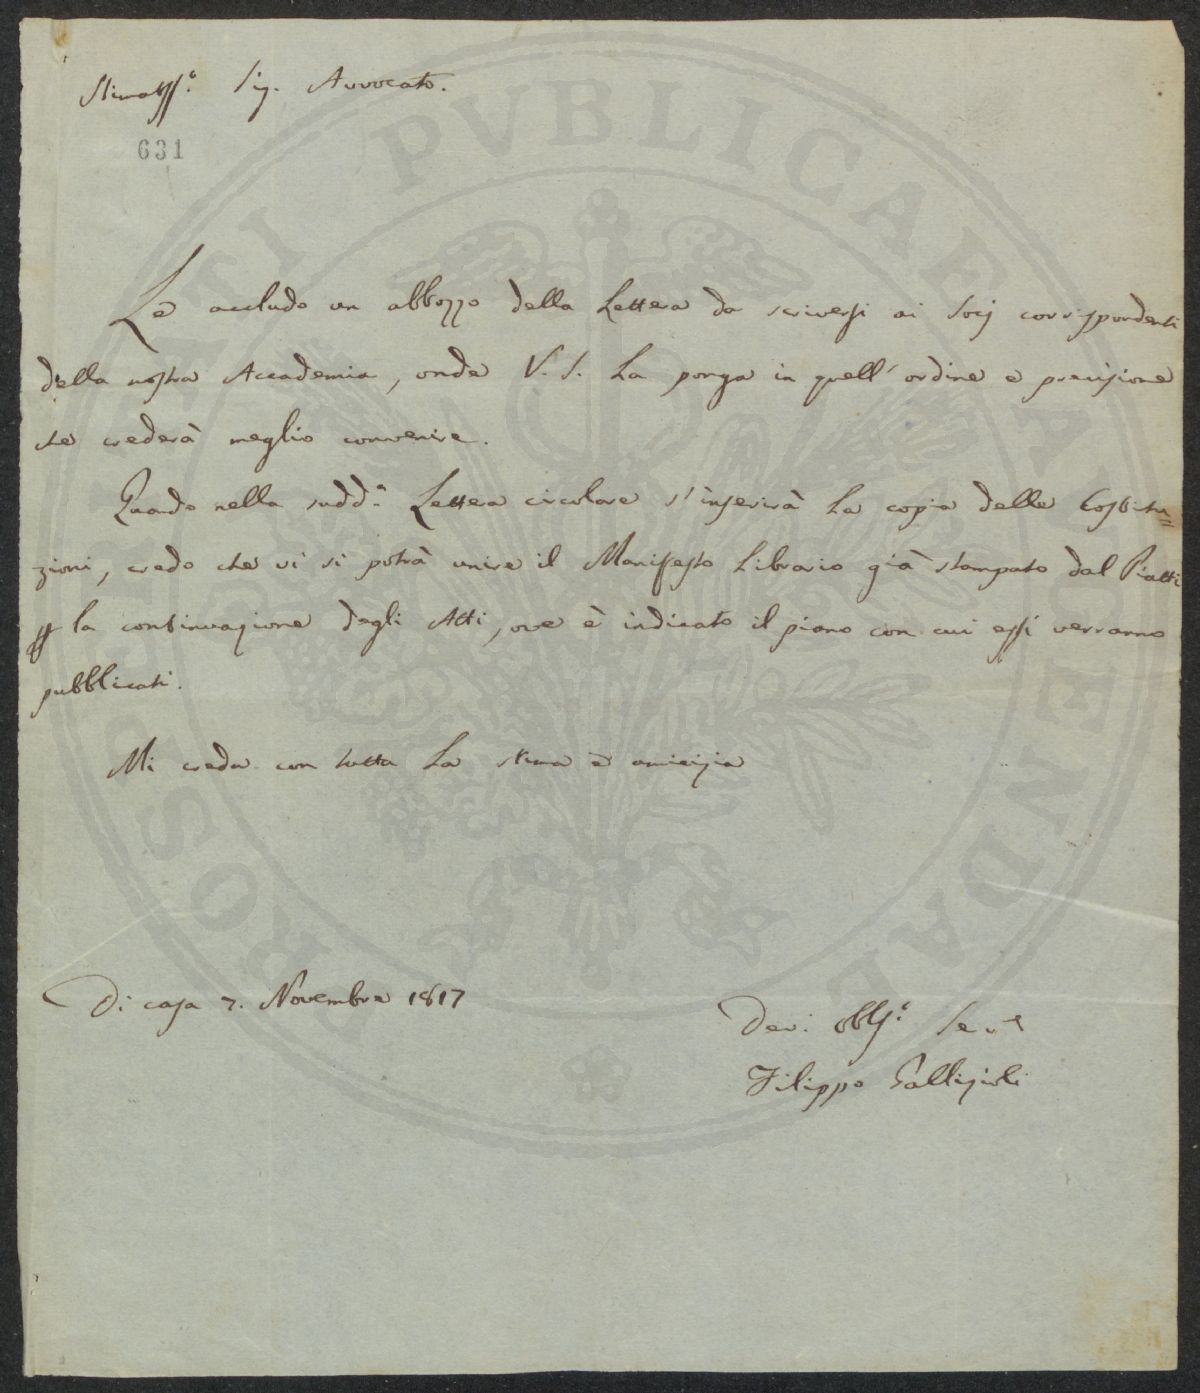 Stimatss.º Sig. Avvocato.
631
Le accludo un abbozzo della Lettera da scriversi ai Socj corrispondenti
della nostra Accademia, onde V. S. La ponga in quell'ordine e precisione
che crederà meglio convenire.
Quando nella sudd.ª Lettera circolare s'inserirà La copia delle Costitu=
zioni, credo che vi si potrà unire il Manifesto Librario già stampato dal Piatti
la continuazione degli Atti, ove è indicato il piano con cui essi verranno
pubblicati.
Mi creda con tutta La stima e amicizia
Di casa 7. Novembre 1817
Dev: Obb.º Serv.e
Filippo Gallizioli
PVBLICAE